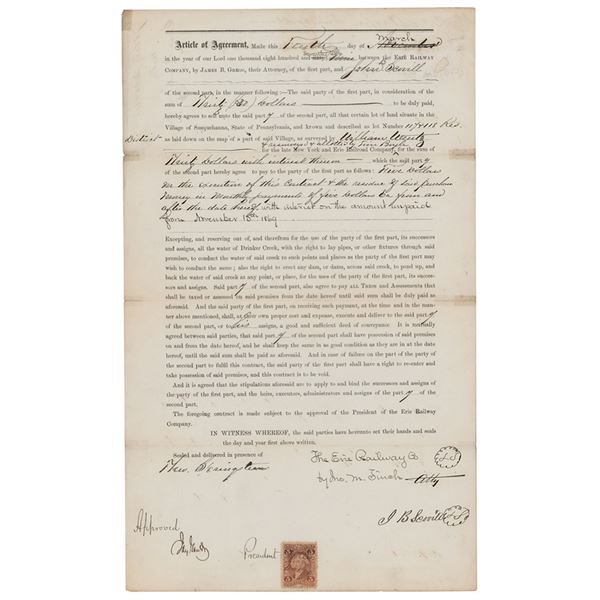 March
Article of Agreement, Made this Tenth day of November
in the year of our Lord one thousand eight hundred and sixty Nine between the Erie Railway
Company, by James B. Gregg, their Attorney, of the first part, and John B Scovill
of the second part, in the manner following:—The said party of the first part, in consideration of the
sum of Thirty (30) Dollars to be duly paid,
hereby agrees to sell unto the said party of the second part, all that certain lot of land situate in the
Village of Susquehanna, State of Pennsylvania, and known and described as lot Number 117 & 118 Res.
District as laid down on the map of a part of said Village, as surveyed by William Wentz
& resurveyed & allotted by
for the late New York and Erie Railroad Company, for
Thirty Dollars with interest thereon which the said party
of the second part hereby agrees to pay to the party of the first part as follows: Five Dollars
on the execution of this Contract & the residue of said purchase
money in Monthly payments of five Dollars Ea from and
after the date hereof with interest on the amount unpaid
from November 15th 1869
Excepting, and reserving out of, and therefrom for the use of the party of the first part, its successors
and assigns, all the water of Drinker Creek, with the right to lay pipes, or other fixtures through said
premises, to conduct the water of said creek to such points and places as the party of the first part may
wish to conduct the same; also the right to erect any dam, or dams, across said creek, to pond up, and
back the water of said creek at any point, or place, for the use of the party of the first part, its successors
and assigns. Said party of the second part, also agree to pay all Taxes and Assessments that
shall be taxed or assessed on said premises from the date hereof until said sum shall be duly paid as
aforesaid. And the said party of the first part, on receiving such payment, at the time and in the
manner above mentioned, shall, at their own proper cost and expense, execute and deliver to the said party
of the second part, or his assigns, a good and sufficient deed of conveyance. It is mutually
agreed between said parties, that said party of the second part shall have possession of said premises
on and from the date hereof, and he shall keep the same in as good condition as they are in at the
date hereof, until the said sum shall be paid as aforesaid. And in case of failure on the part of the party
of the second part to fulfil this contract, the said party of the first part shall have a right to re-enter and
take possession of said premises, and this contract is to be void.
And it is agreed that the stipulations aforesaid are to apply to and bind the successors and assigns of
the party of the first part, and the heirs, executors, administrators and assigns of the party of the
second part.
The foregoing contract is made subject to the approval of the President of the Erie Railway
Company.
IN WITNESS WHEREOF, the said parties have hereunto set their hands and seals
the day and year first above written.
Sealed and delivered in presence of
Theo. Springsteen
The Erie Railway Co
by Jno. M. Finch Atty
LS
J B Scovill
LS
Approved
Jay Gould
President